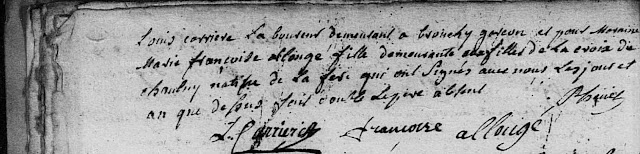 Louis carriere La boureur demeurant a brouchy garcon et pour Maraine
Marie francoise allongé fille demeurante aux filles de la croix de
chauny natifve de la fere qui ont signés avec nous Les jour et
an que dessus fait double Le pere absent
L. Carriere francoise allongé